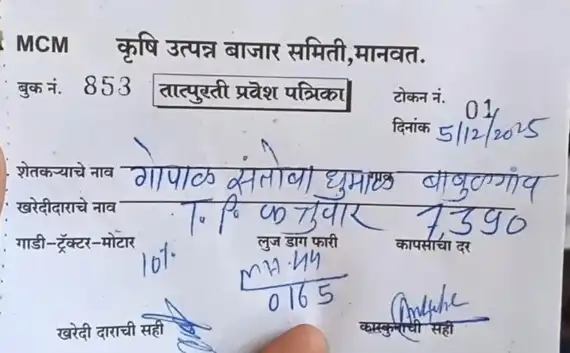 MCM कृषि उत्पन्न बाजार समिती,मानवत.
बुक नं. 853 तात्पुरती प्रवेश पत्रिका टोकन नं. 01
दिनांक 5/12/2025
शेतकऱ्याचे नाव गोपाळ संतोबा धुमाळ बाबुळगांव
खरेदीदाराचे नाव T. P. कत्रुवार 7,390
गाडी-ट्रॅक्टर-मोटार लुज डाग फारी कापसाचा दर
10%
MH.44
0165
खरेदी दाराची सही कारकुनाची सही